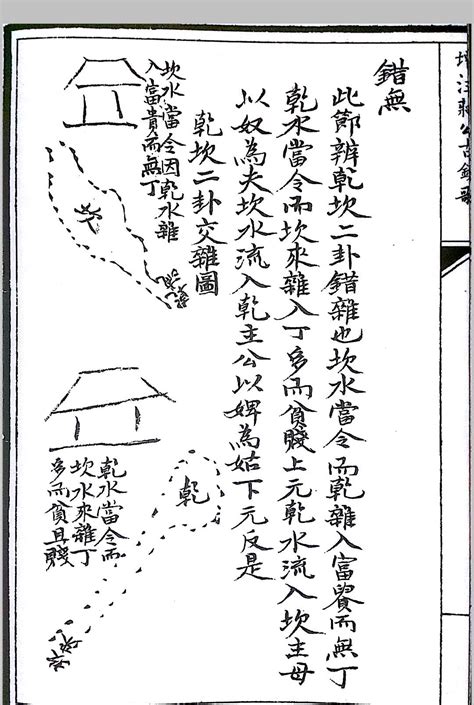 增注蔣公古鏡歌
錯無
此節辨乾坎二卦錯雜也坎水當令而乾雜入富貴而無丁
乾水當令而坎來雜入丁多而貧賤上元乾水流入坎主母
以奴為夫坎水流入乾主公以婢為姑下元反是
乾坎二卦交雜圖
坎水當令因乾水雜
入富貴而無丁
坎
乾
乾水當令而
坎水來雜丁
多而貧且賤